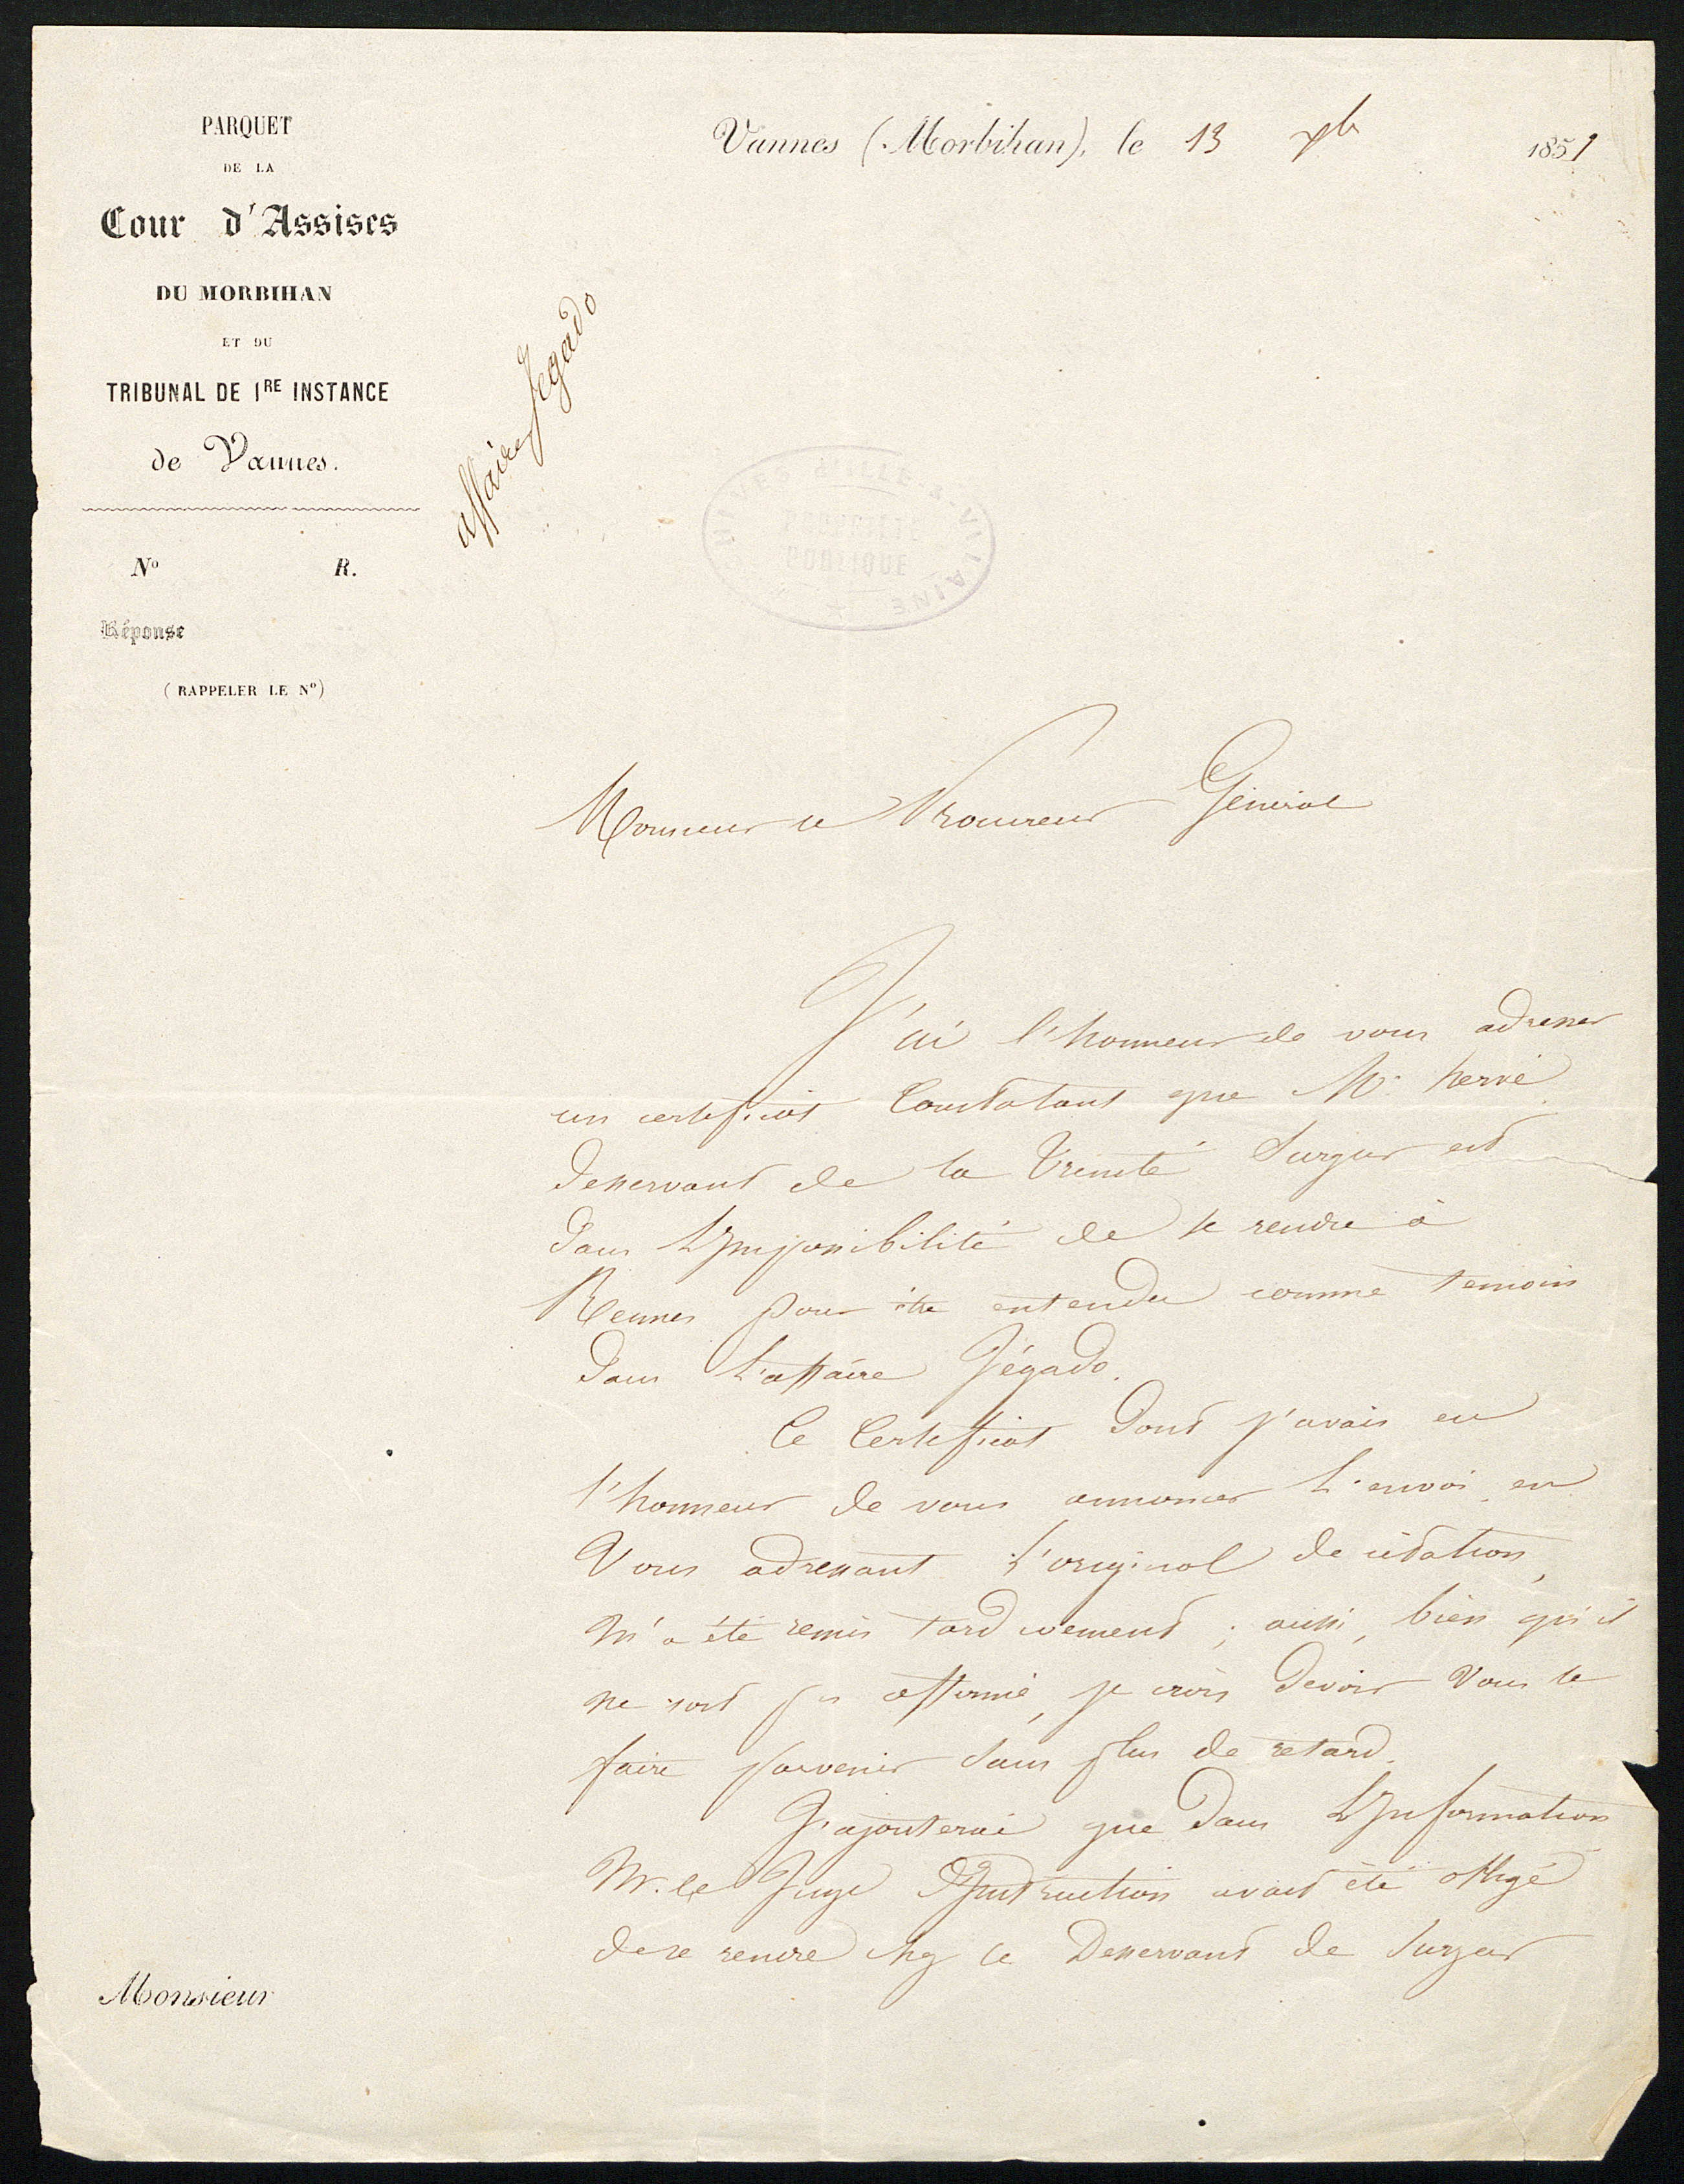 PARQUET
DE LA
Cour d'Assises
DU MORBIHAN
ET DU
TRIBUNAL DE 1RE INSTANCE
de Vannes.
No R.
Réponse
(RAPPELER LE No)
Vannes (Morbihan), le 13 Xbre 1851
affaire Jegado
ARCHIVES D'ILLE & VILAINE
PROPRIÉTÉ
PUBLIQUE
Monsieur le Procureur Général
J'ai l'honneur de vous adresser
un certificat Constatant que Mr. hervé
desservant de la Trinité Surzur est
dans L'Impossibilité de se rendre à
Rennes pour être entendu comme temoin
dans L'affaire Jégado.
Ce Certificat dont j'avais eu
l'honneur de vous annoncer L'envoi en
Vous adressant L'original de citation,
m'a été remis tardivement ; aussi, bien qu'il
ne soit pas affirmé, je crois devoir Vous le
faire parvenir sans plus de retard.
J'ajouterai que dans L'Information
Mr. le Juge d'Instruction avait été obligé
de se rendre chez le Desservant de Surzur
Monsieur